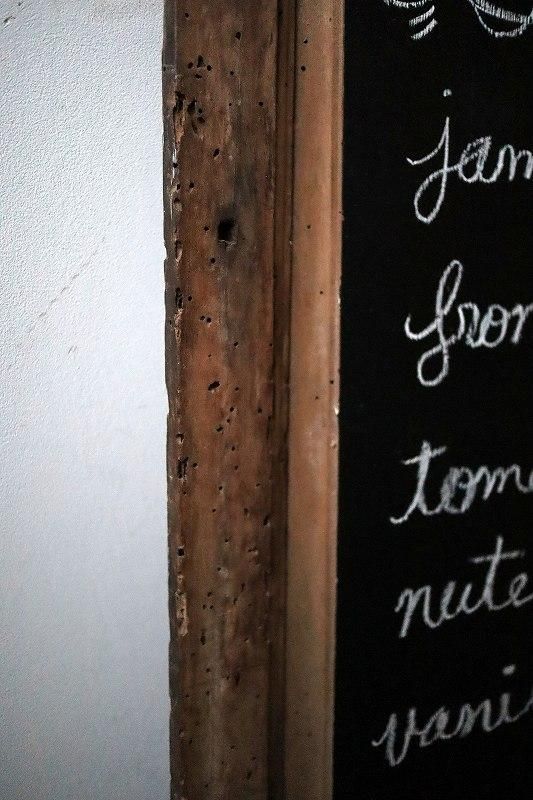 jam
from
tom
nute
vani